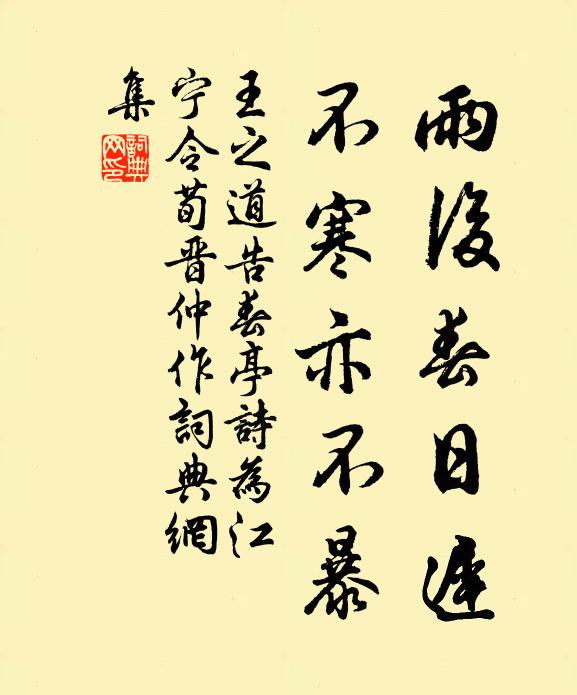 雨後春日遲
不寒亦不暴
王之道告春亭詩為江
宁令荀晋仲作詞典網
集
詞典
网印